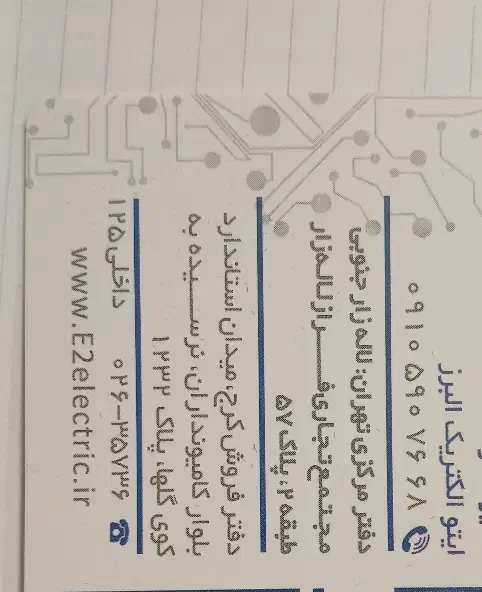 ایتو الکتریک البرز
۰۹۱۰ ۵۹۰ ۷۶ ۶۸
دفتر مرکزی تهران: لاله زار جنوبی
مجتمع تجاری فراز لاله زار
طبقه ۲، پلاک ۵۷
دفتر فروش کرج: میدان استاندارد
بلوار کامیونداران، نرسیده به
کوی گلها، پلاک ۱۲۳۲
۰۲۶-۳۵۷۳۶ داخلی ۱۲۵
www.E2electric.ir